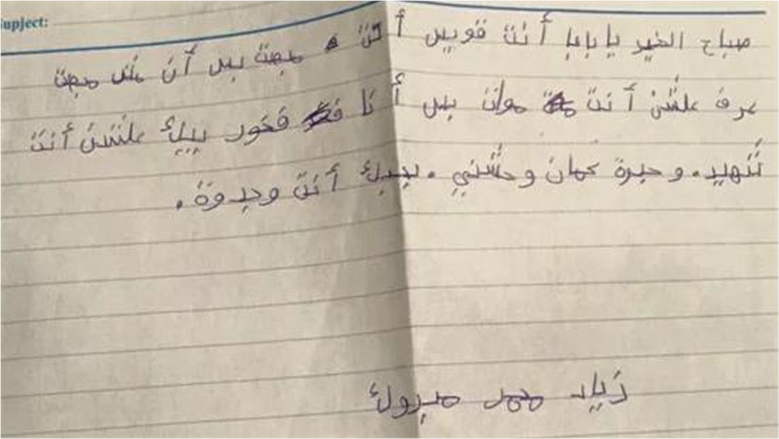 Supject:
صباح الخير يا بابا أنت قويس أنت مبصت بس أن مش مبصت
عرف علشن أنت موت بس أنا فخور بيك علشن أنت
شهيد. و جدة كمان وحشني. بحبك أنت وجدوة.
زياد محمد مبروك